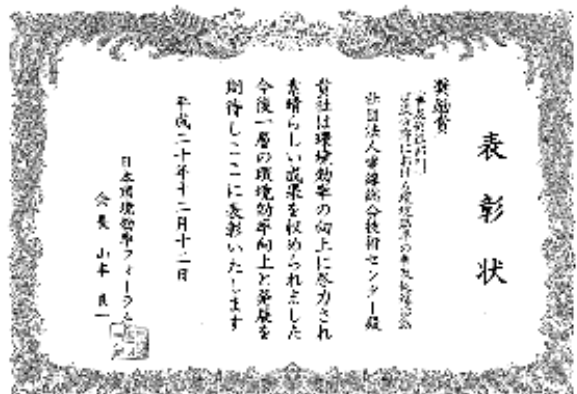 表彰状
奨励賞
社団法人電線総合技術センター殿
貴社は環境効率の向上に尽力され
素晴らしい成果を収められました
今後一層の環境効率向上と発展を
期待しここに表彰いたします
平成二十年十二月十二日
日本環境効率フォーラム
会長 山本良一